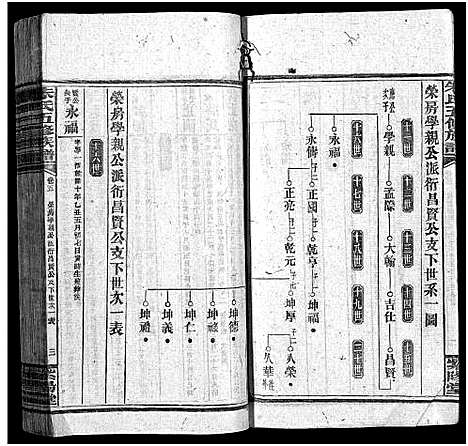 朱氏五修族譜
榮房學親公派衍昌賢公支下世系一圖
十一世
十二世
十三世
十四世
十五世
學親
孟隆
大翰
吉仕
昌賢
十六世
十七世
十八世
十九世
二十世
永福
永儔
正國
正亮
乾亨
乾元
坤福
坤厚
八榮
八華
坤德
坤修
坤仁
坤義
坤禮
榮房學親公派衍昌賢公支下世次一表
十六世
賢公長子
永福
朱氏五修族譜
卷五
榮房學親公派衍昌賢公支下世次一表
三